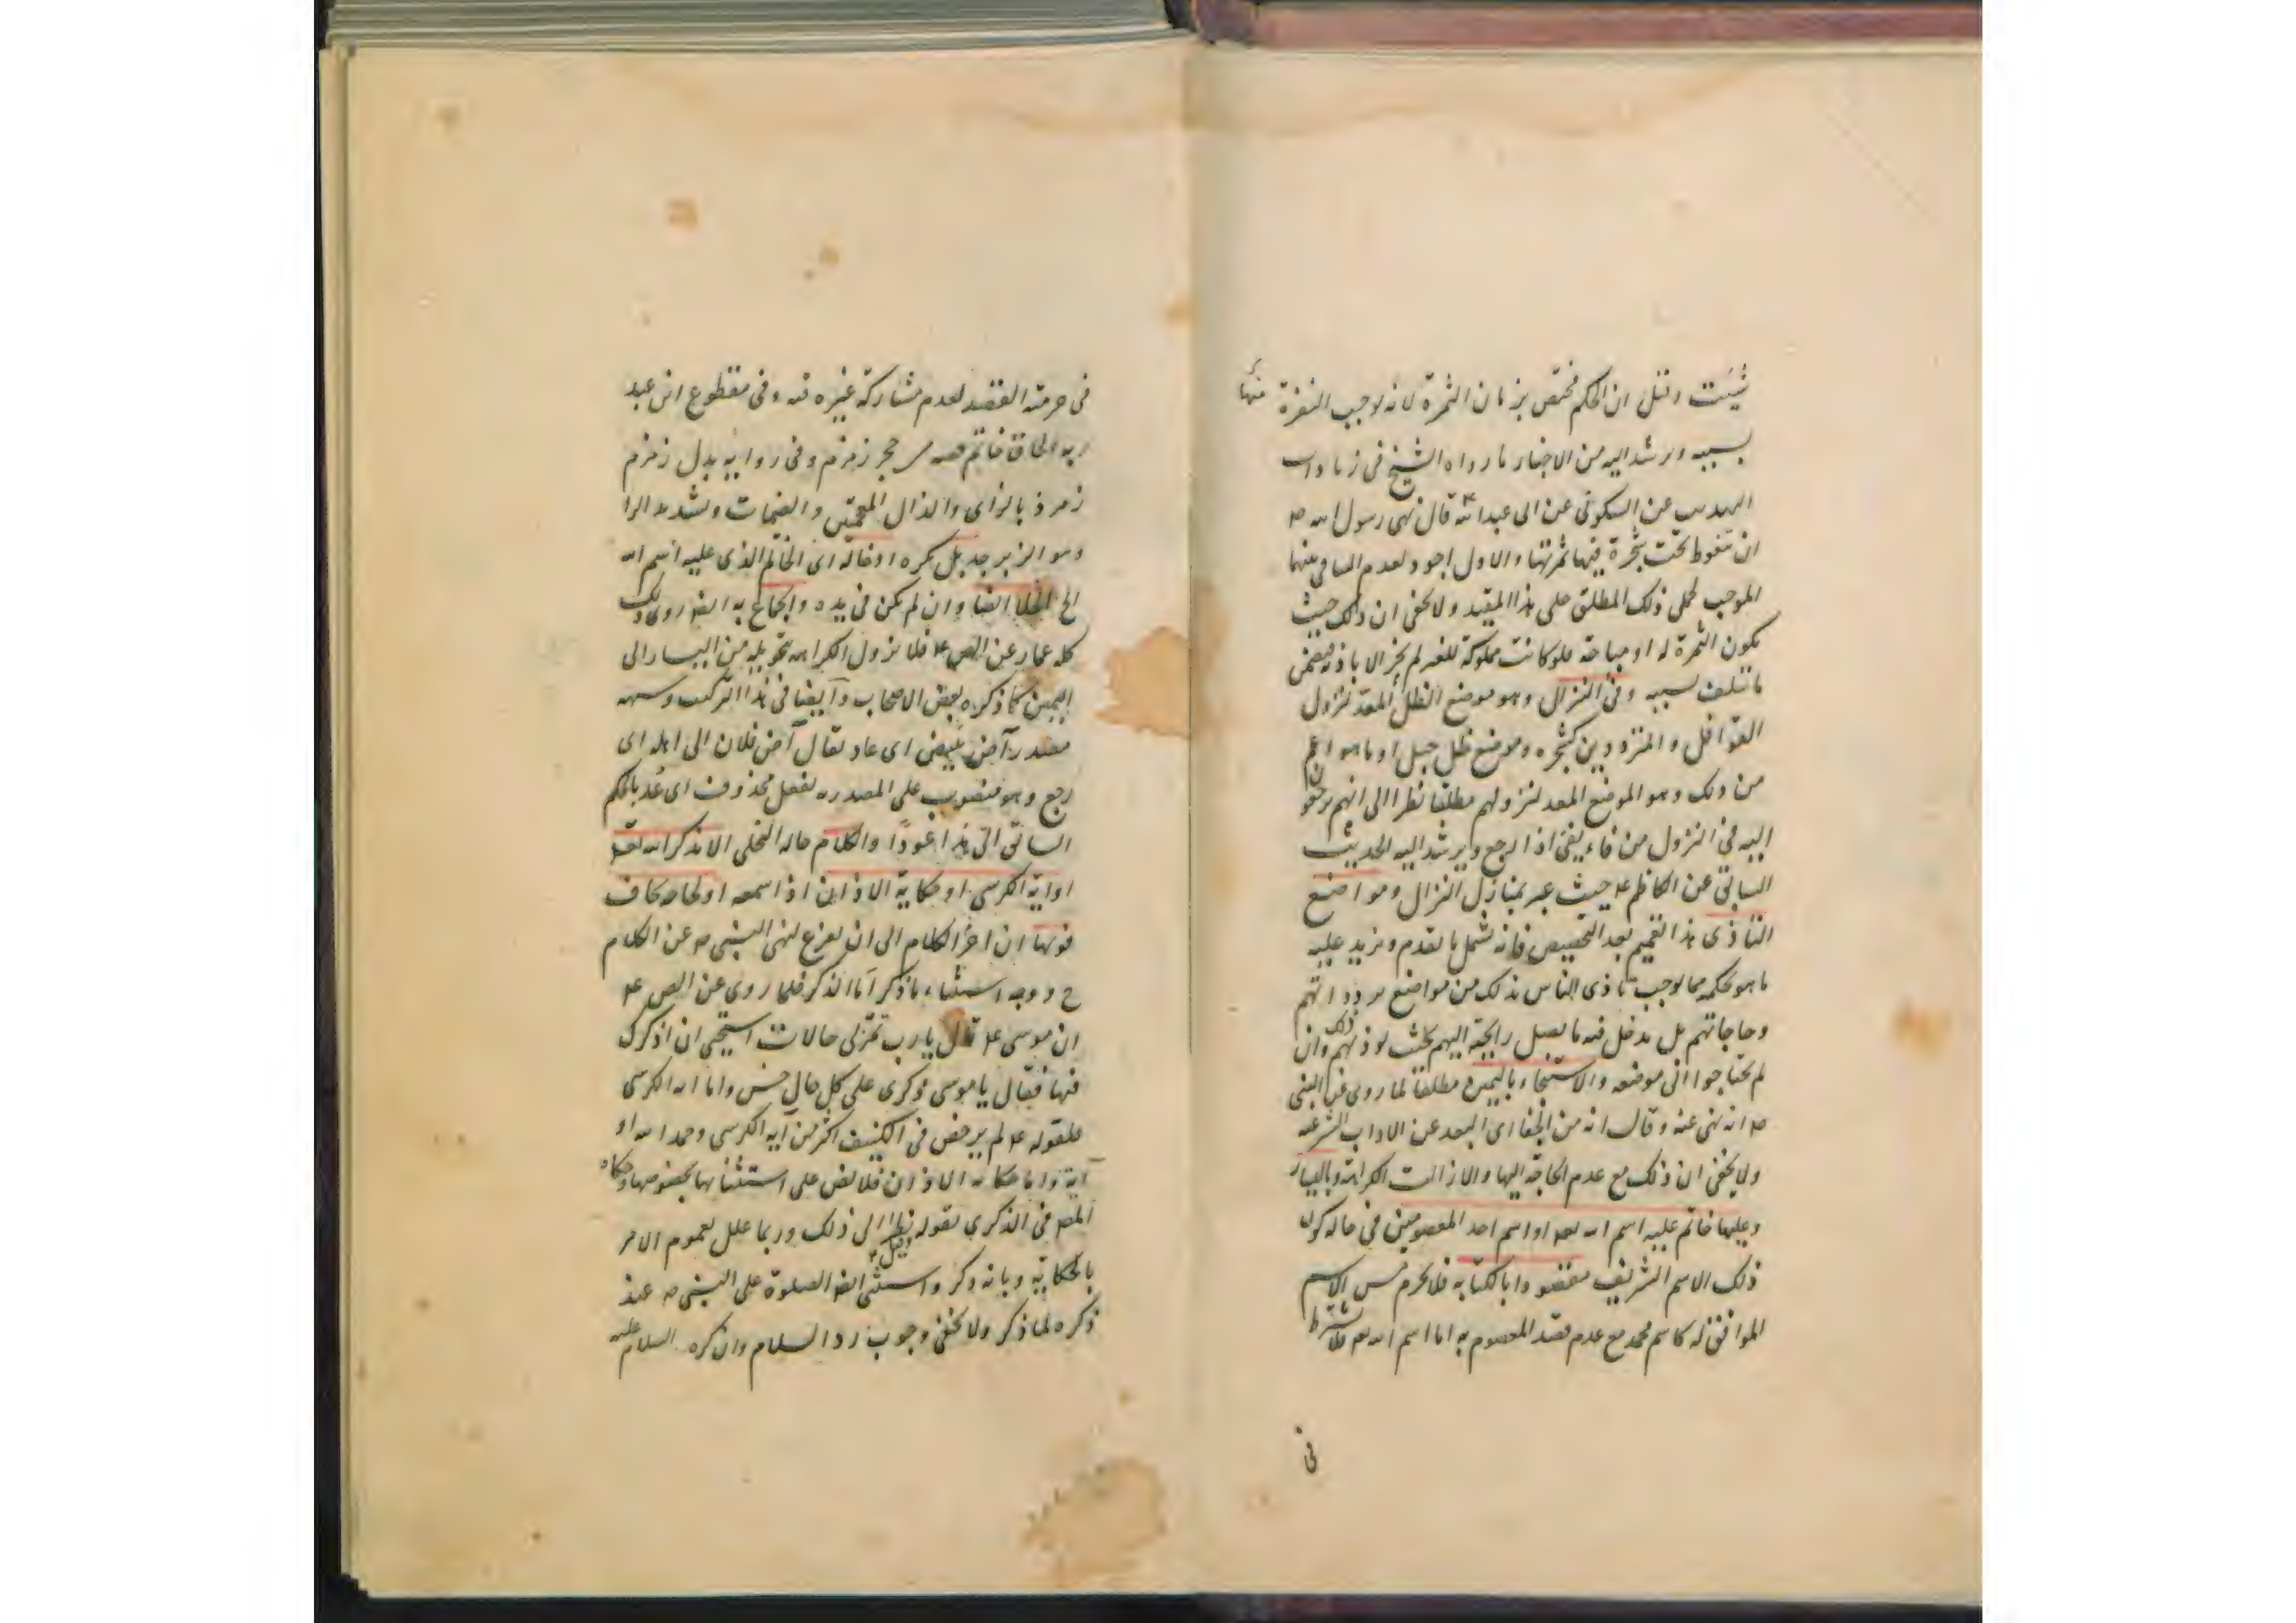 شئت وقيل ان الحكم مختص بزمان الثمرة لانه يوجب النفرة منها
بسببه ويرشد اليه من الاخبار ما رواه الشيخ في زيادات
التهذيب عن السكوني عن ابى عبد الله ع قال نهى رسول الله ص
ان يتغوط تحت شجرة فيها ثمرتها والاول اجود لعدم المنافي بينهما
الموجب لحمل ذلك المطلق على هذا المقيد ولا يخفى ان ذلك حيث
تكون الثمرة له او مباحة فلو كانت مملوكة للغير لم يجز الا باذنه فيضمن
ما يتلف بسببه وفئ النزال وهو موضع الظل المعد لنزول
القوافل والمترددين كشجرة وموضع ظل جبل او ما هو اعم
من ذلك وهو الموضع المعد لنزولهم مطلقا نظرا الى انهم يرجعون
اليه في النزول من فاء يفئ اذا رجع ويرشد اليه الحديث
السابق عن الكاظم ع حيث عبر بمنازل النزال ومواضع
التاذى هذا تعميم بعد التخصيص فانه يشمل ما تقدم ويزيد عليه
ما هو بحكمه مما يوجب تاذى الناس بذلك من مواضع تردداتهم
وحاجاتهم بل يدخل فيه ما يصل رايحته اليهم بحيث يوذيهم ذلك وان
لم يحتاجوا الى موضعه والاستنجاء باليمين مطلقا لما روى عن النبى
ص انه نهى عنه وقال انه من الجفا اى البعد عن الاداب الشرعيه
ولا يخفى ان ذلك مع عدم الحاجة اليها والا زالت الكراهة وباليسار
وعليها خاتم عليه اسم الله تعه او اسم احد المعصومين في حاله كون
ذلك الاسم الشريف مقصودا بالكتابه فلا يحرم مس الاسم
الموافق له كاسم محمد مع عدم قصد المعصوم به اما اسم الله تع فلا يشترط
في
في حرمته القصد لعدم مشاركة غيره فيه وفى مقطوع ابن عبد
ربه الحاق خاتم فصه من حجر زمزم وفى روايه بدل زمزم
زمرذ بالزاى والذال المعجمتين والضمات وتشديد الرا
وهو الزبرجد بل يكره ادخاله اى الخاتم الذى عليه اسم الله
الى الخلا ايضا وان لم يكن فى يده والجماع به ايضا روى ذلك
كله عمار عن الص ع فلا تزول الكراهه بتحويله من اليسار الى
اليمين كما ذكره بعض الاصحاب وايضا في هذا التركيب وشبهه
مصدر آض يئيض اى عاد يقال آض فلان الى اهله اى
رجع وهو منصوب على المصدريه لفعل محذوف اى عد بالحكم
السابق الى هذا عودا والكلام حاله التخلى الا بذكر الله تعه
او اية الكرسى او حكاية الاذان اذا سمعه او لحاجه يخاف
فوتها ان اخر الكلام الى ان يفرغ لنهى النبى ص عن الكلام
ح ووجه استثناء ما ذكر اما الذكر فلما روى عن الص ع
ان موسى ع قال يا رب تمر بى حالات استحيى ان اذكرك
فيها فقال يا موسى ذكرى على كل حال حسن واما اية الكرسى
فلقوله ع لم يرخص فى الكنيف اكثر من آيه الكرسى وحمد الله او
آية واما حكايه الاذان فلا نص على استثنائها بخصوصها وحكاه
المص فى الذكرى بقوله وقيل نظرا الى ذلك وربما علل بعموم الامر
بالحكاية وبانه ذكر واستثنى ايضا الصلوة على النبى ص عند
ذكره لما ذكر ولا يخفى وجوب رد السلام وان كره السلام عليه